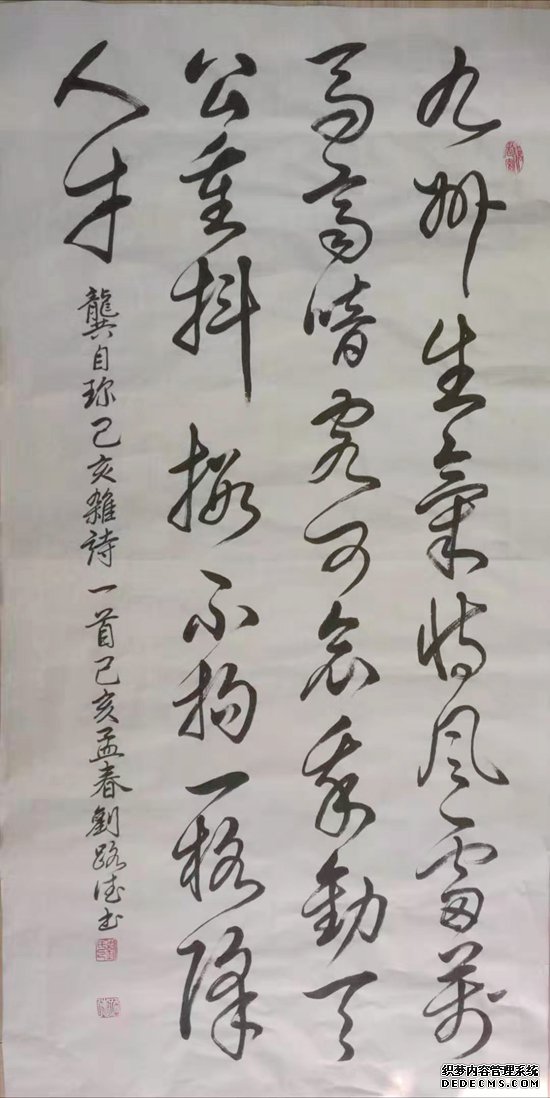 九州生氣恃風雷萬
馬齊喑究可哀我勸天
公重抖擻不拘一格降
人才
龔自珍己亥雜詩一首己亥孟春劉路德书
织梦内容管理系统
DEDECMS.COM